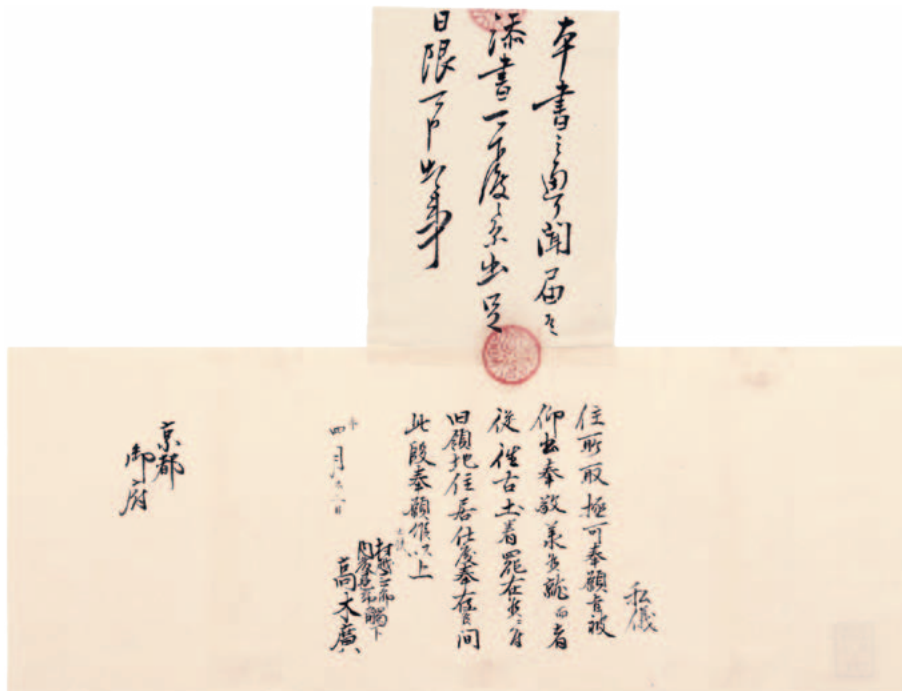 本書之通可聞届之
添書可下渡之条出足
日限可申出事
私儀
住所取極可奉願旨被
仰出奉敬承候就而者
従往古土着罷在候ニ付
旧領地住居仕度奉存候間
此段奉願候以上
四月
触下
高木廣
京都
御府